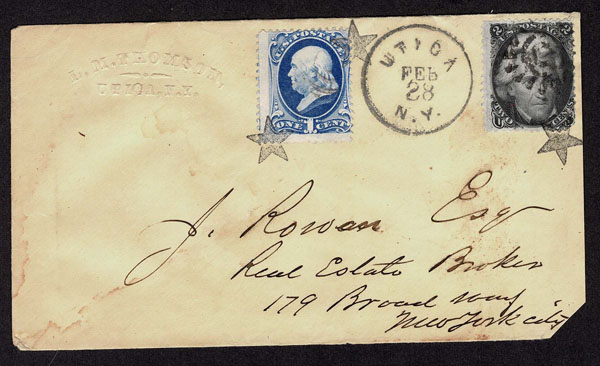 L. M. THOMSON,
UTICA, N.Y.
U.S. POSTAGE
ONE 1 CENT
UTICA
FEB
28
N.Y.
2 2
U.S. POSTAGE
TWO CENTS
J. Rowan Esq
Real Estate Broker
179 Broad way
New York city